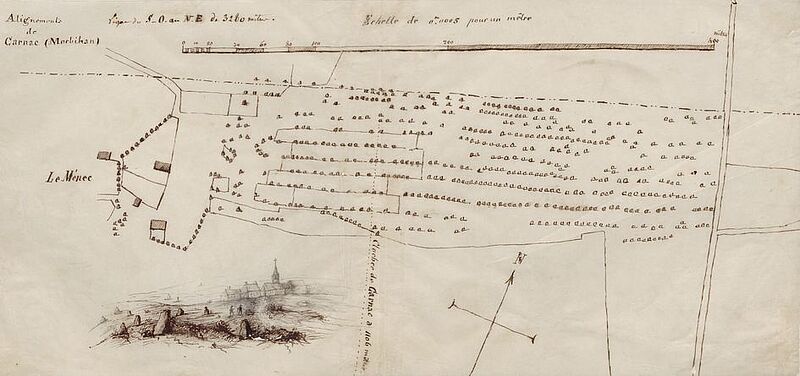 Alignements
de
Carnac (Morbihan)
du S-O. au N-E de 3260 mètres.
Echelle de 0,0005 pour un mètre
0
100
200
mètres
400
Le Ménec
N
Clocher de Carnac à 1106 mètres